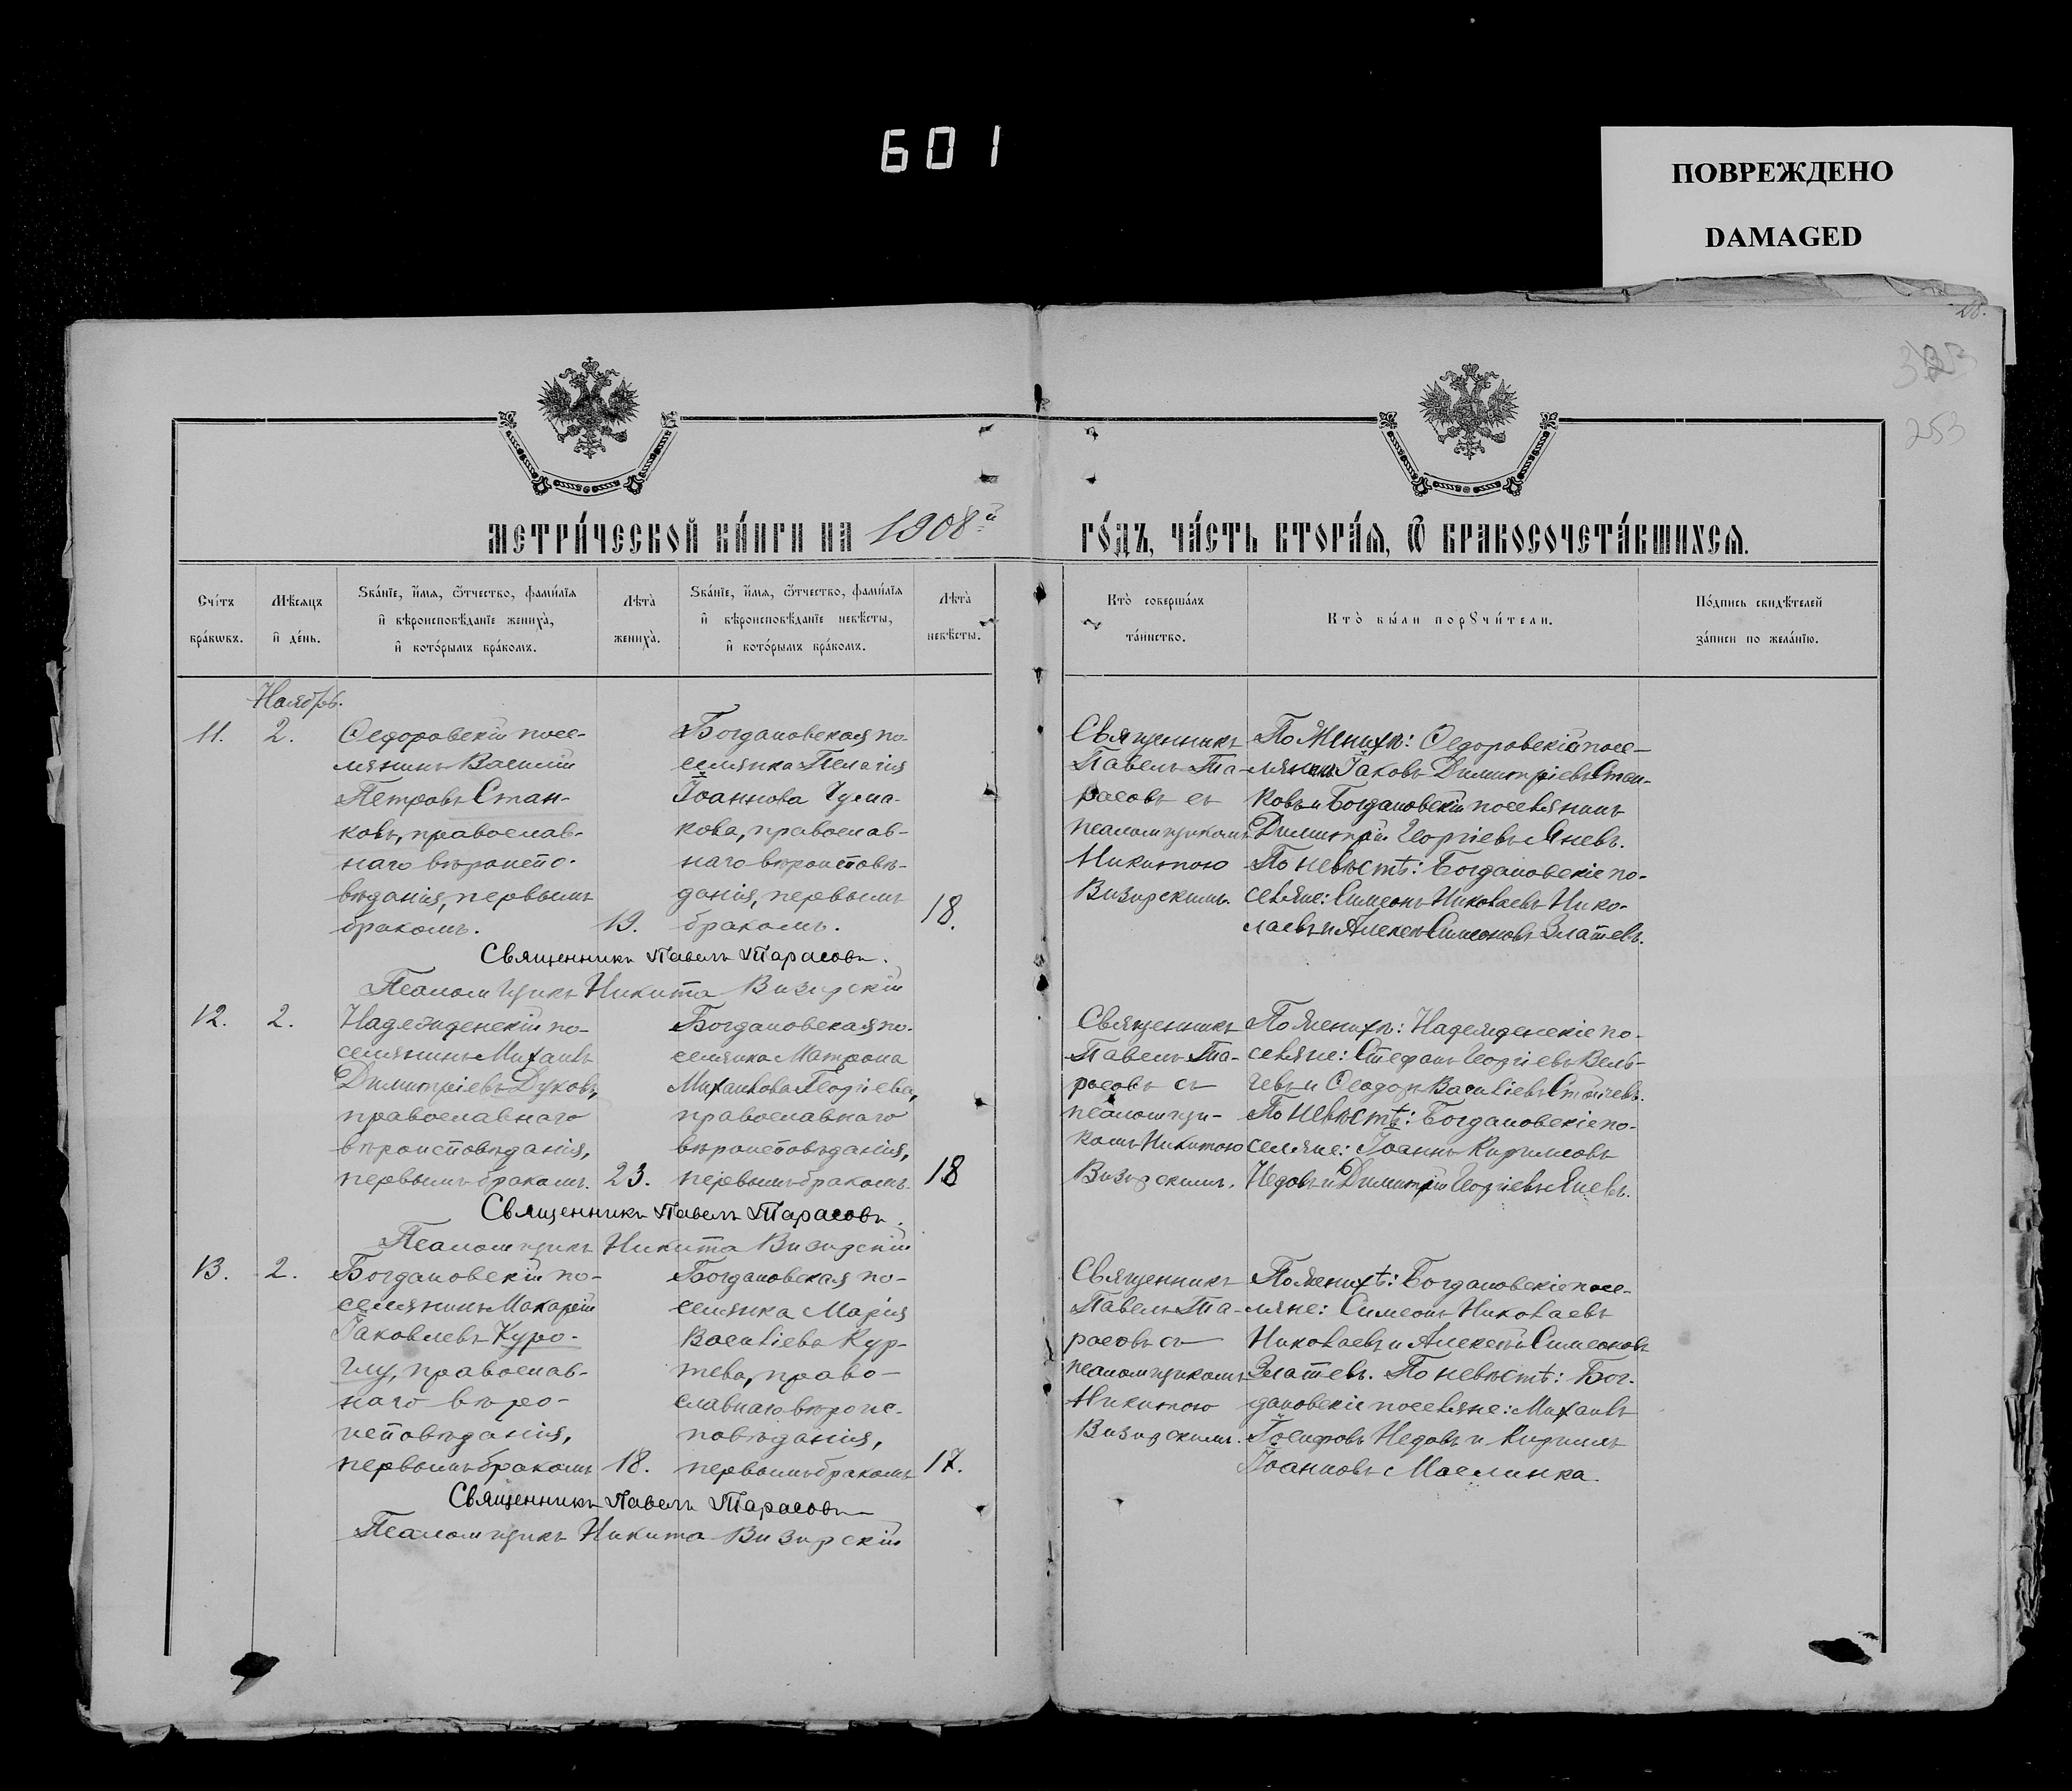 601
ПОВРЕЖДЕНО
DAMAGED
253
МЕТРИ́ЧЕСКОЙ КНИ́ГИ НА 1908й ГО́ДЪ, ЧА́СТЬ ВТОРА́Я, Ѿ БРАКОСОЧЕТА́ВШИХСЯ.
Сче́тъ
бра́кѡвъ.
Мѣ́сяцъ
и҆ де́нь.
Зва́нїе, и҆́мя, ѻ҆́тчество, фами́лїя
и҆ вѣроисповѣ́данїе жениха̀,
и҆ кото́рымъ бра́комъ.
Лѣта̀
жениха̀.
Зва́нїе, и҆́мя, ѻ҆́тчество, фами́лїя
и҆ вѣроисповѣ́данїе невѣ́сты,
и҆ кото́рымъ бра́комъ.
Лѣта̀
невѣ́сты.
Кто̀ соверша́лъ
та́инство.
Кто̀ бы́ли порꙋчи́тели.
По́дпись свидѣ́телей
за́писи по жела́нїю.
Ноябрь.
11.
2.
Ѳедоровскій посе-
лянинъ Василій
Петровъ Стан-
ковъ, православ-
наго вѣроиспо-
вѣданія, первымъ
бракомъ.
19.
Богдановская по-
селянка Пелагія
Іоаннова Чума-
кова, православ-
наго вѣроисповѣ-
данія, первымъ
бракомъ.
18.
Священникъ
Павелъ Та-
расовъ съ
псаломщикомъ
Никитою
Визирскимъ.
По женихѣ: Ѳедоровскій посе-
лянинъ Іаковъ Димитріевъ Стан-
ковъ и Богдановскій поселянинъ
Димитрій Георгіевъ Яневъ.
По невѣстѣ: Богдановскіе по-
селяне: Симеонъ Николаевъ Нико-
лаевъ и Алексѣй Симеоновъ Златевъ.
Священникъ Павелъ Тарасовъ.
Псаломщикъ Никита Визирскій
12.
2.
Надеждинскій по-
селянинъ Михаилъ
Димитріевъ Дуковъ,
православнаго
вѣроисповѣданія,
первымъ бракомъ.
23.
Богдановская по-
селянка Матрона
Михаилова Георгіева,
православнаго
вѣроисповѣданія,
первымъ бракомъ.
18
Священникъ
Павелъ Та-
расовъ съ
псаломщи-
комъ Никитою
Визирскимъ.
По женихѣ: Надеждинскіе по-
селяне: Стефанъ Георгіевъ Вель-
чевъ и Ѳеодоръ Василіевъ Стойчевъ.
По невѣстѣ: Богдановскіе по-
селяне: Іоаннъ Кирилловъ
Недовъ и Димитрій Георгіевъ Яневъ.
Священникъ Павелъ Тарасовъ.
Псаломщикъ Никита Визирскій
13.
2.
Богдановскій по-
селянинъ Макарій
Іаковлевъ Куро-
глу, православ-
наго вѣро-
исповѣданія,
первымъ бракомъ
18.
Богдановская по-
селянка Марія
Василіева Кур-
тева, право-
славнаго вѣроис-
повѣданія,
первымъ бракомъ
17.
Священникъ
Павелъ Та-
расовъ съ
псаломщикомъ
Никитою
Визирскимъ.
По женихѣ: Богдановскіе посе-
ляне: Симеонъ Николаевъ
Николаевъ и Алексѣй Симеоновъ
Златевъ. По невѣстѣ: Бог-
дановскіе поселяне: Михаилъ
Іосифовъ Недовъ и Кириллъ
Іоанновъ Маслинка.
Священникъ Павелъ Тарасовъ
Псаломщикъ Никита Визирскій